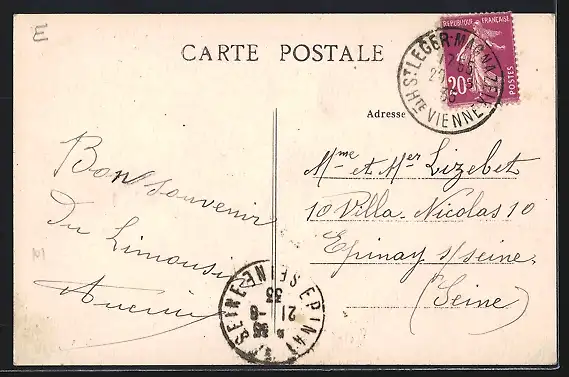 E
CARTE POSTALE
RÉPUBLIQUE FRANÇAISE
20c
POSTES
ST LEGER-MAGNAZEIX
17 35
HTE VIENNE
Adresse
Mme et Mer Lizebet
10 Villa. Nicolas 10
Epinay s/seine.
(Seine)
Bon souvenir
Du Limousin
EPINAY S/ SEINE
SEINE
21 -8